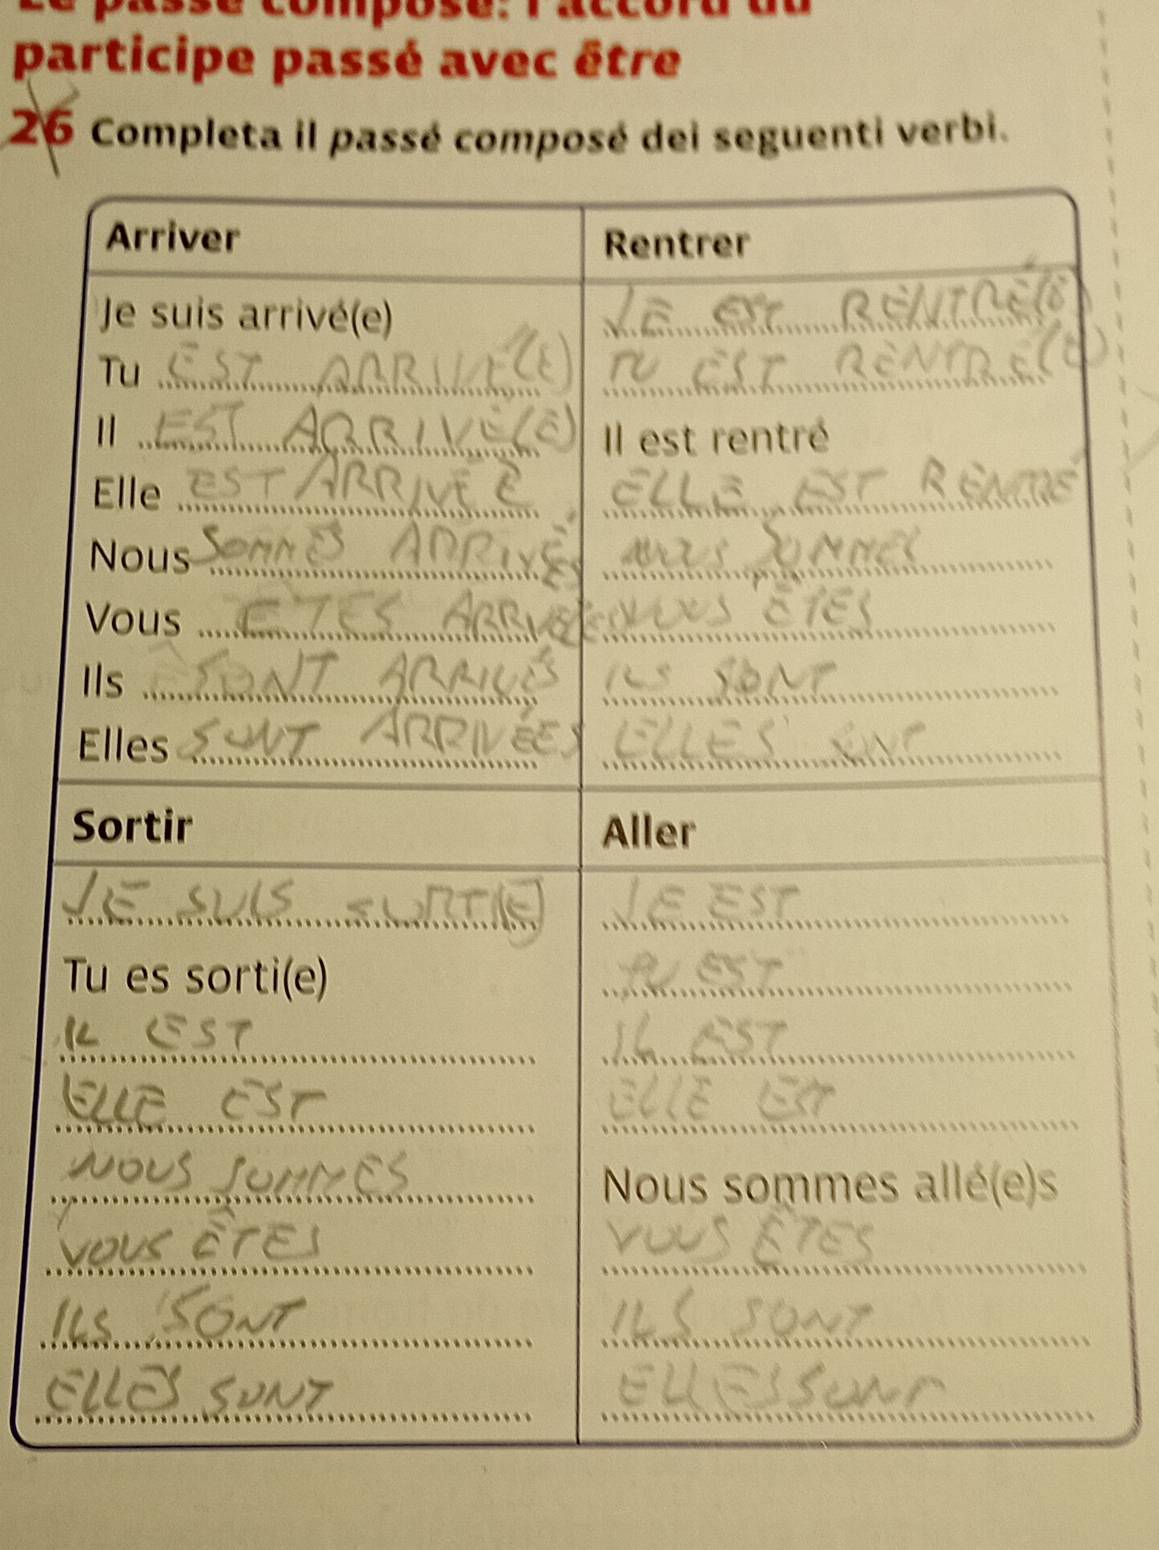 Le passé composé: l'accord du
participe passé avec être
26 Completa il passé composé dei seguenti verbi.
Arriver
Je suis arrivé(e)
Tu EST ARRIVÉ(E)
Il EST ARRIVÉ(E)
Elle EST ARRIVÉE
Nous SOMMES ARRIVÉES
Vous ÊTES
Ils SONT ARRIVÉS
Elles SONT ARRIVÉES
Rentrer
JE EST RENTRÉ(E)
TU EST RENTRÉ(E)
Il est rentré
ELLE EST RENTRÉ
NOUS SOMMES
VOUS ÊTES
ILS SONT
ELLES SONT
Sortir
JE SUIS SORTI(E)
Tu es sorti(e)
IL EST
ELLE EST
NOUS SOMMES
VOUS ÊTES
ILS SONT
ELLES SONT
Aller
JE EST
TU EST
IL EST
ELLE EST
Nous sommes allé(e)s
VOUS ÊTES
ILS SONT
ELLES SONT